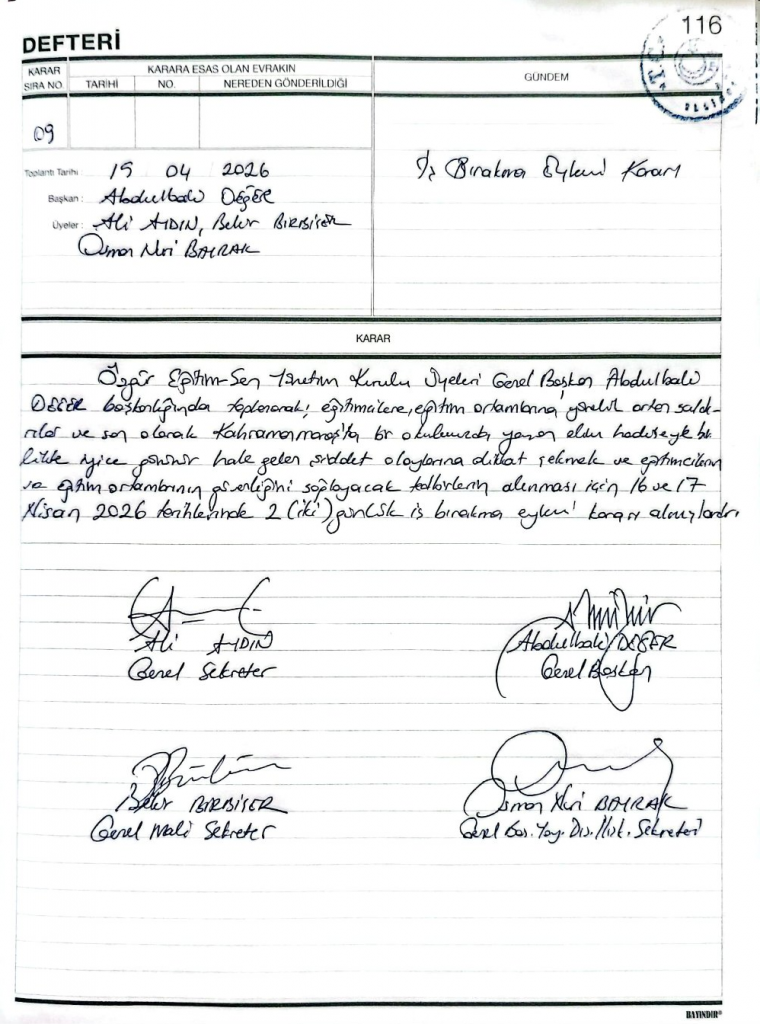 116
DEFTERİ
KARAR SIRA NO.
KARARA ESAS OLAN EVRAKIN
TARİHİ NO. NEREDEN GÖNDERİLDİĞİ
GÜNDEM
T.C.
09
Toplantı Tarihi 15 04 2026
Başkan: Abdulbaki DEĞER
Üyeler: Ali AYDIN, Bekir BİRBİÇER
Osman Nuri BAYRAK
İş Bırakma Eylemi Kararı
KARAR
Özgür Eğitim-Sen Yönetim Kurulu Üyeleri Genel Başkan Abdulbaki
DEĞER başkanlığında toplanarak; eğitimcilere, eğitim ortamlarına yönelik artan saldı-
rılar ve son olarak Kahramanmaraş'ta bir okulumuzda yaşanan eldım hadiseyle bir
likte iyice görünür hale gelen şiddet olaylarına dikkat çekmek ve eğitimcilerin
ve eğitim ortamlarının güvenliğini sağlayacak tedbirlerin alınması için 16 ve 17
Nisan 2026 tarihlerinde 2 (iki) günlük iş bırakma eylemi kararı almışlardır.
Ali AYDIN
Genel Sekreter
Abdulbaki DEĞER
Genel Başkan
Bekir BİRBİÇER
Genel Mali Sekreter
Osman Nuri BAYRAK
Genel Bas. Yay. Dış. İlişk. Sekreteri
BAYINDIR®